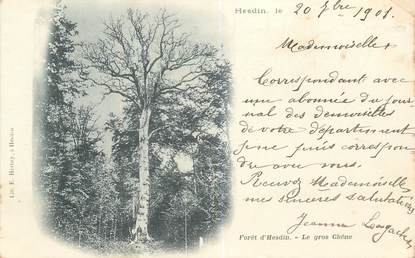 Hesdin, le 20 7bre 1901.
Mademoiselle
Correspondant avec
une abonnée du jour
nal des demoiselles
de votre département
je ne puis correspon
dre avec vous.
Recevez Mademoiselle
mes sincères salutations
Jeanne
Forêt d'Hesdin. - Le gros Chêne
Lib. E. à Hesdin